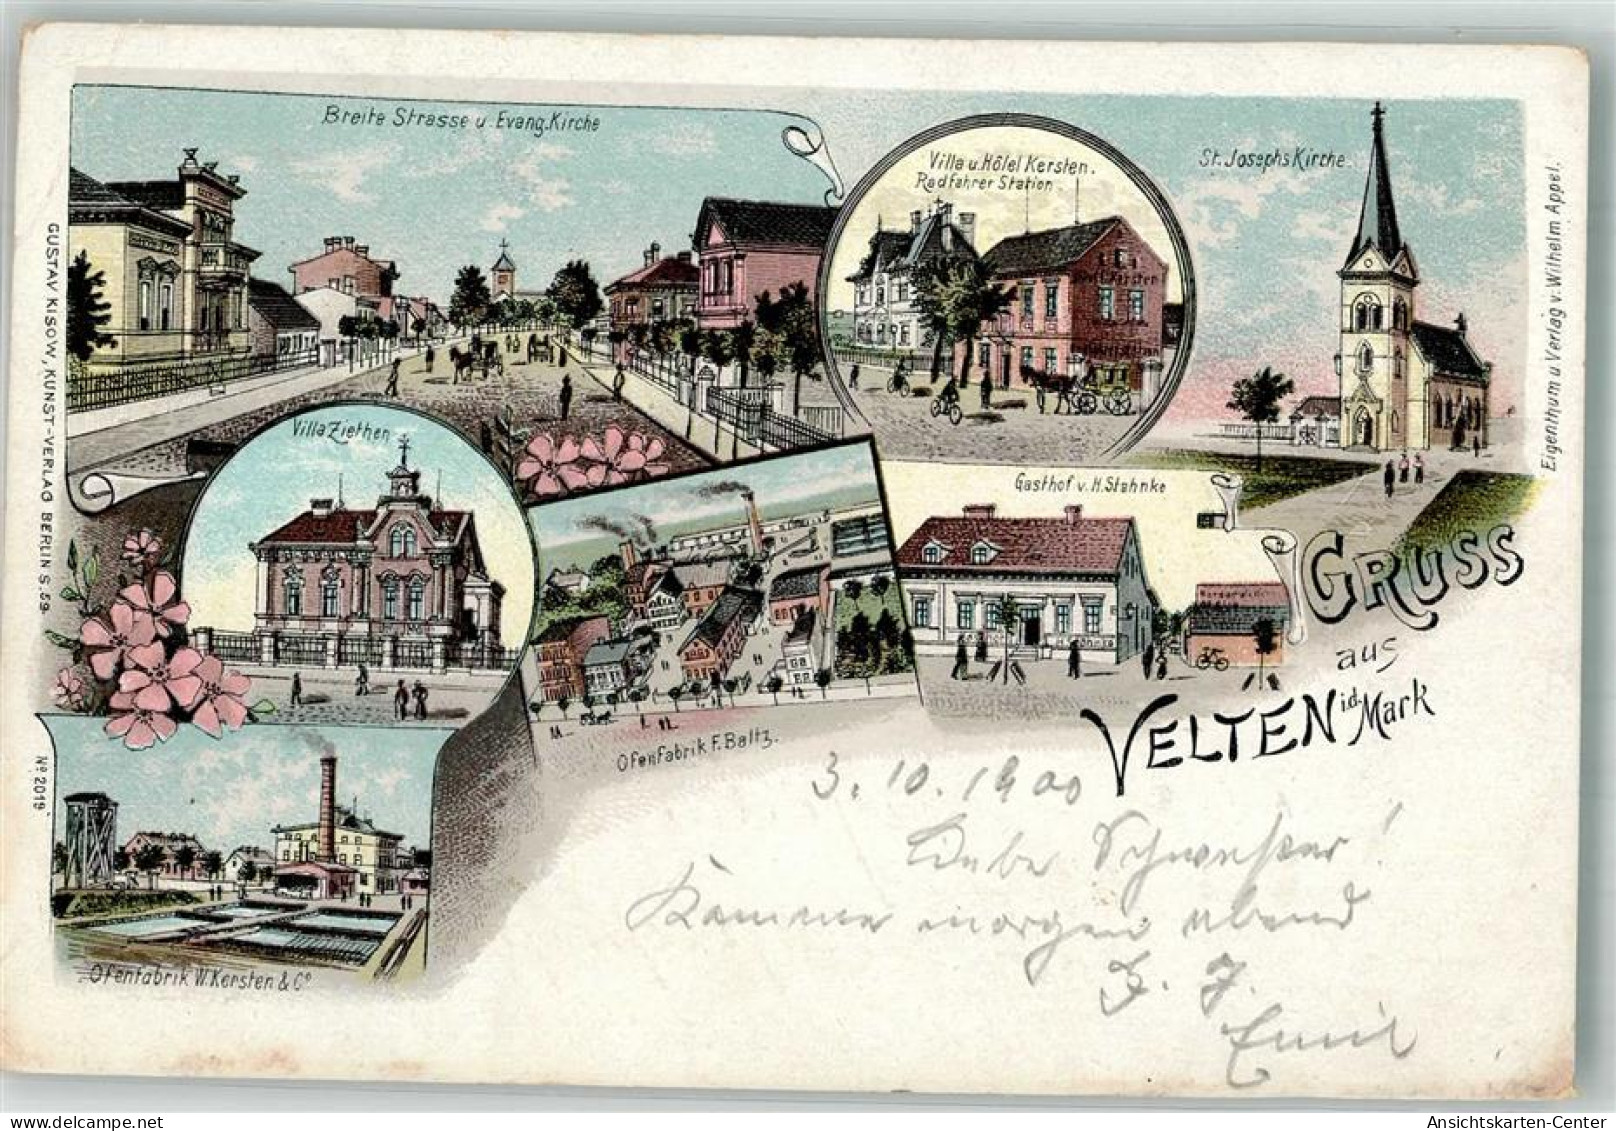 Breite Strasse u. Evang. Kirche
Villa u. Hôtel Kersten.
Radfahrer Station.
St. Josephs Kirche.
Villa Ziethen
Gasthof v. H. Stahnke
Ofenfabrik F. Baltz.
Ofenfabrik W. Kersten & Co
GRUSS
aus
VELTEN i.d. Mark
GUSTAV KISOW, KUNST-VERLAG BERLIN S. 59.
No 2019
Eigenthum u. Verlag v. Wilhelm Appel.
3. 10. 1900
Liebe Schwester!
Komme morgen abend
Emil
Ansichtskarten-Center